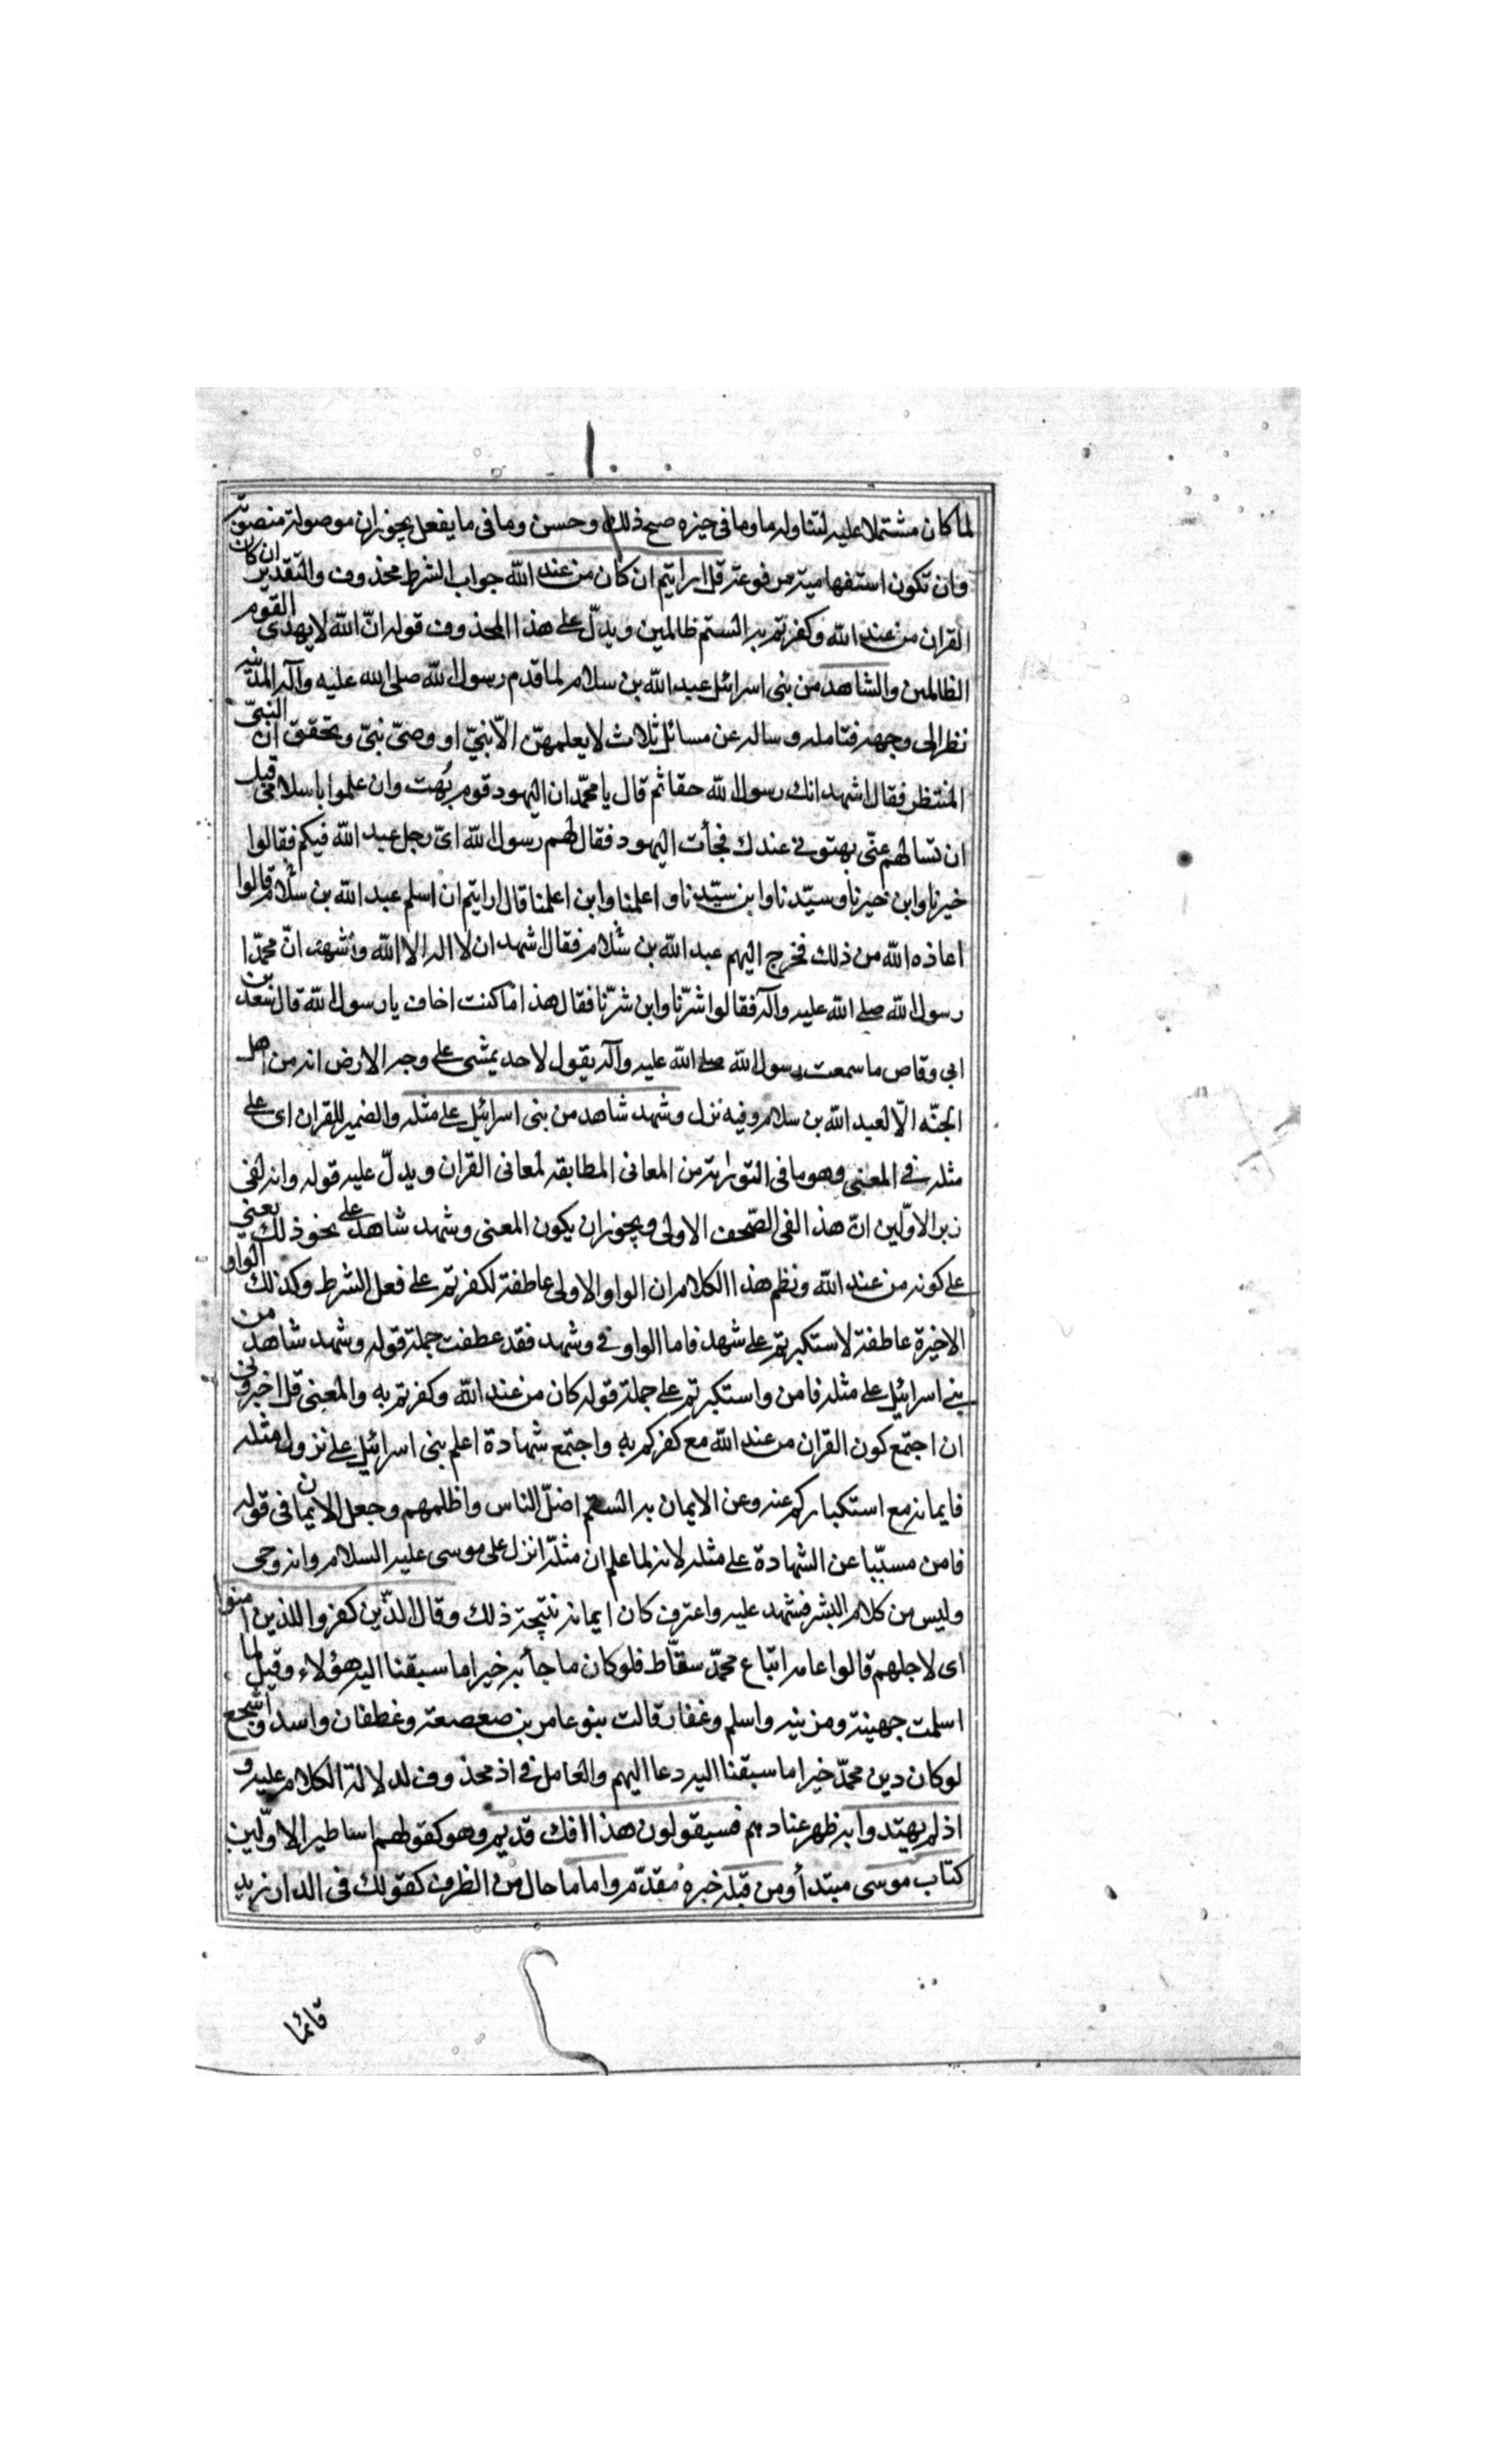 لما كان مشتملا عليه لتناوله ما وما في حيزه صح ذلك وحسن وما في ما يفعل يجوز ان موصولة منصوبة
وان تكون استفهامية مرفوعة قل ارايتم ان كان من عند الله جواب الشرط محذوف والتقدير ان كان
القران من عند الله وكفرتم به الستم ظالمين ويدلّ على هذا المحذوف قوله انّ الله لا يهدى القوم
الظالمين والشاهد من بنى اسرائيل عبد الله بن سلام لما قدم رسول الله صلى الله عليه وآله المدينة
نظر الى وجهه فتامله وساله عن مسائل ثلاث لا يعلمهنّ الّا نبيّ او وصىّ نبىّ وتحقق ان النبىّ
المنتظر فقال اشهد انك رسول الله حقا ثم قال يا محمّد ان اليهود قوم بُهت وان علموا باسلامى قبل
ان تسالهم عنّى بهتونى عندك فجأت اليهود فقال لهم رسول الله اىّ رجل عبد الله فيكم فقالوا
خيرنا وابن خيرنا وسيّدنا وابن سيّدنا واعلمنا وابن اعلمنا قال ارايتم ان اسلم عبد الله بن سلام قالوا
اعاذه الله من ذلك فخرج اليهم عبد الله بن سلام فقال اشهد ان لا اله الا الله واشهد انّ محمّدا
رسول الله صلى الله عليه وآله فقالوا شرّنا وابن شرّنا فقال هذا ما كنت اخاف يا رسول الله قال سعد بن
ابى وقاص ما سمعت رسول الله صلى الله عليه وآله يقول لاحد يمشى على وجه الارض انه من اهل
الجنّه الّا لعبد الله بن سلام وفيه نزل وشهد شاهد من بنى اسرائيل على مثله والضمير للقران اى على
مثله في المعنى وهو ما فى التوراة من المعانى المطابقة لمعانى القران ويدلّ عليه قوله وانه لفى
زبر الاوّلين انّ هذا لفى الصّحف الاولى ويجوز ان يكون المعنى وشهد شاهد على نحو ذلك يعنى
على كونه من عند الله ونظم هذا الكلام ان الواو الاولى عاطفة لكفرتم على فعل الشرط وكذلك الواو
الاخيرة عاطفة لاستكبرتم على شهد فاما الواو فى وشهد فقد عطفت جملة قوله وشهد شاهد من
بنى اسرائيل على مثله فامن واستكبرتم على جملة قوله كان من عند الله وكفرتم به والمعنى قل اخبرونى
ان اجتمع كون القران من عند الله مع كفركم به واجتمع شهادة اعلم بنى اسرائيل على نزول مثله
فايمانه مع استكباركم عنه وعن الايمان به الستم اضلّ الناس واظلمهم وجعل الايمان فى قوله
فامن مسبّبا عن الشهادة على مثله لانه لما علم ان مثله انزل على موسى عليه السلام وانه وحى
وليس من كلام البشر فشهد عليه واعترف كان ايمانه نتيجة ذلك وقال الذين كفروا للذين امنوا
اى لاجلهم قالوا عامة اتباع محمّد سقّاط فلو كان ما جأ به خيرا ما سبقنا اليه هؤلاء وقيل لما
اسلمت جهينة ومزينه واسلم وغفار قالت بنو عامر بن صعصعة وغطفان واسد واشجع
لو كان دين محمّد خيرا ما سبقنا اليه رعا اليهم والعامل في اذ محذوف لدلالة الكلام عليه و
اذ لم يهتدوا به ظهر عنادهم فسيقولون هذا افك قديم وهو كقولهم اساطير الاوّلين
كتاب موسى مبتدأ ومن قبله خبره مقدّم واماما حال من الظرف كقولك فى الدار زيد
قائما